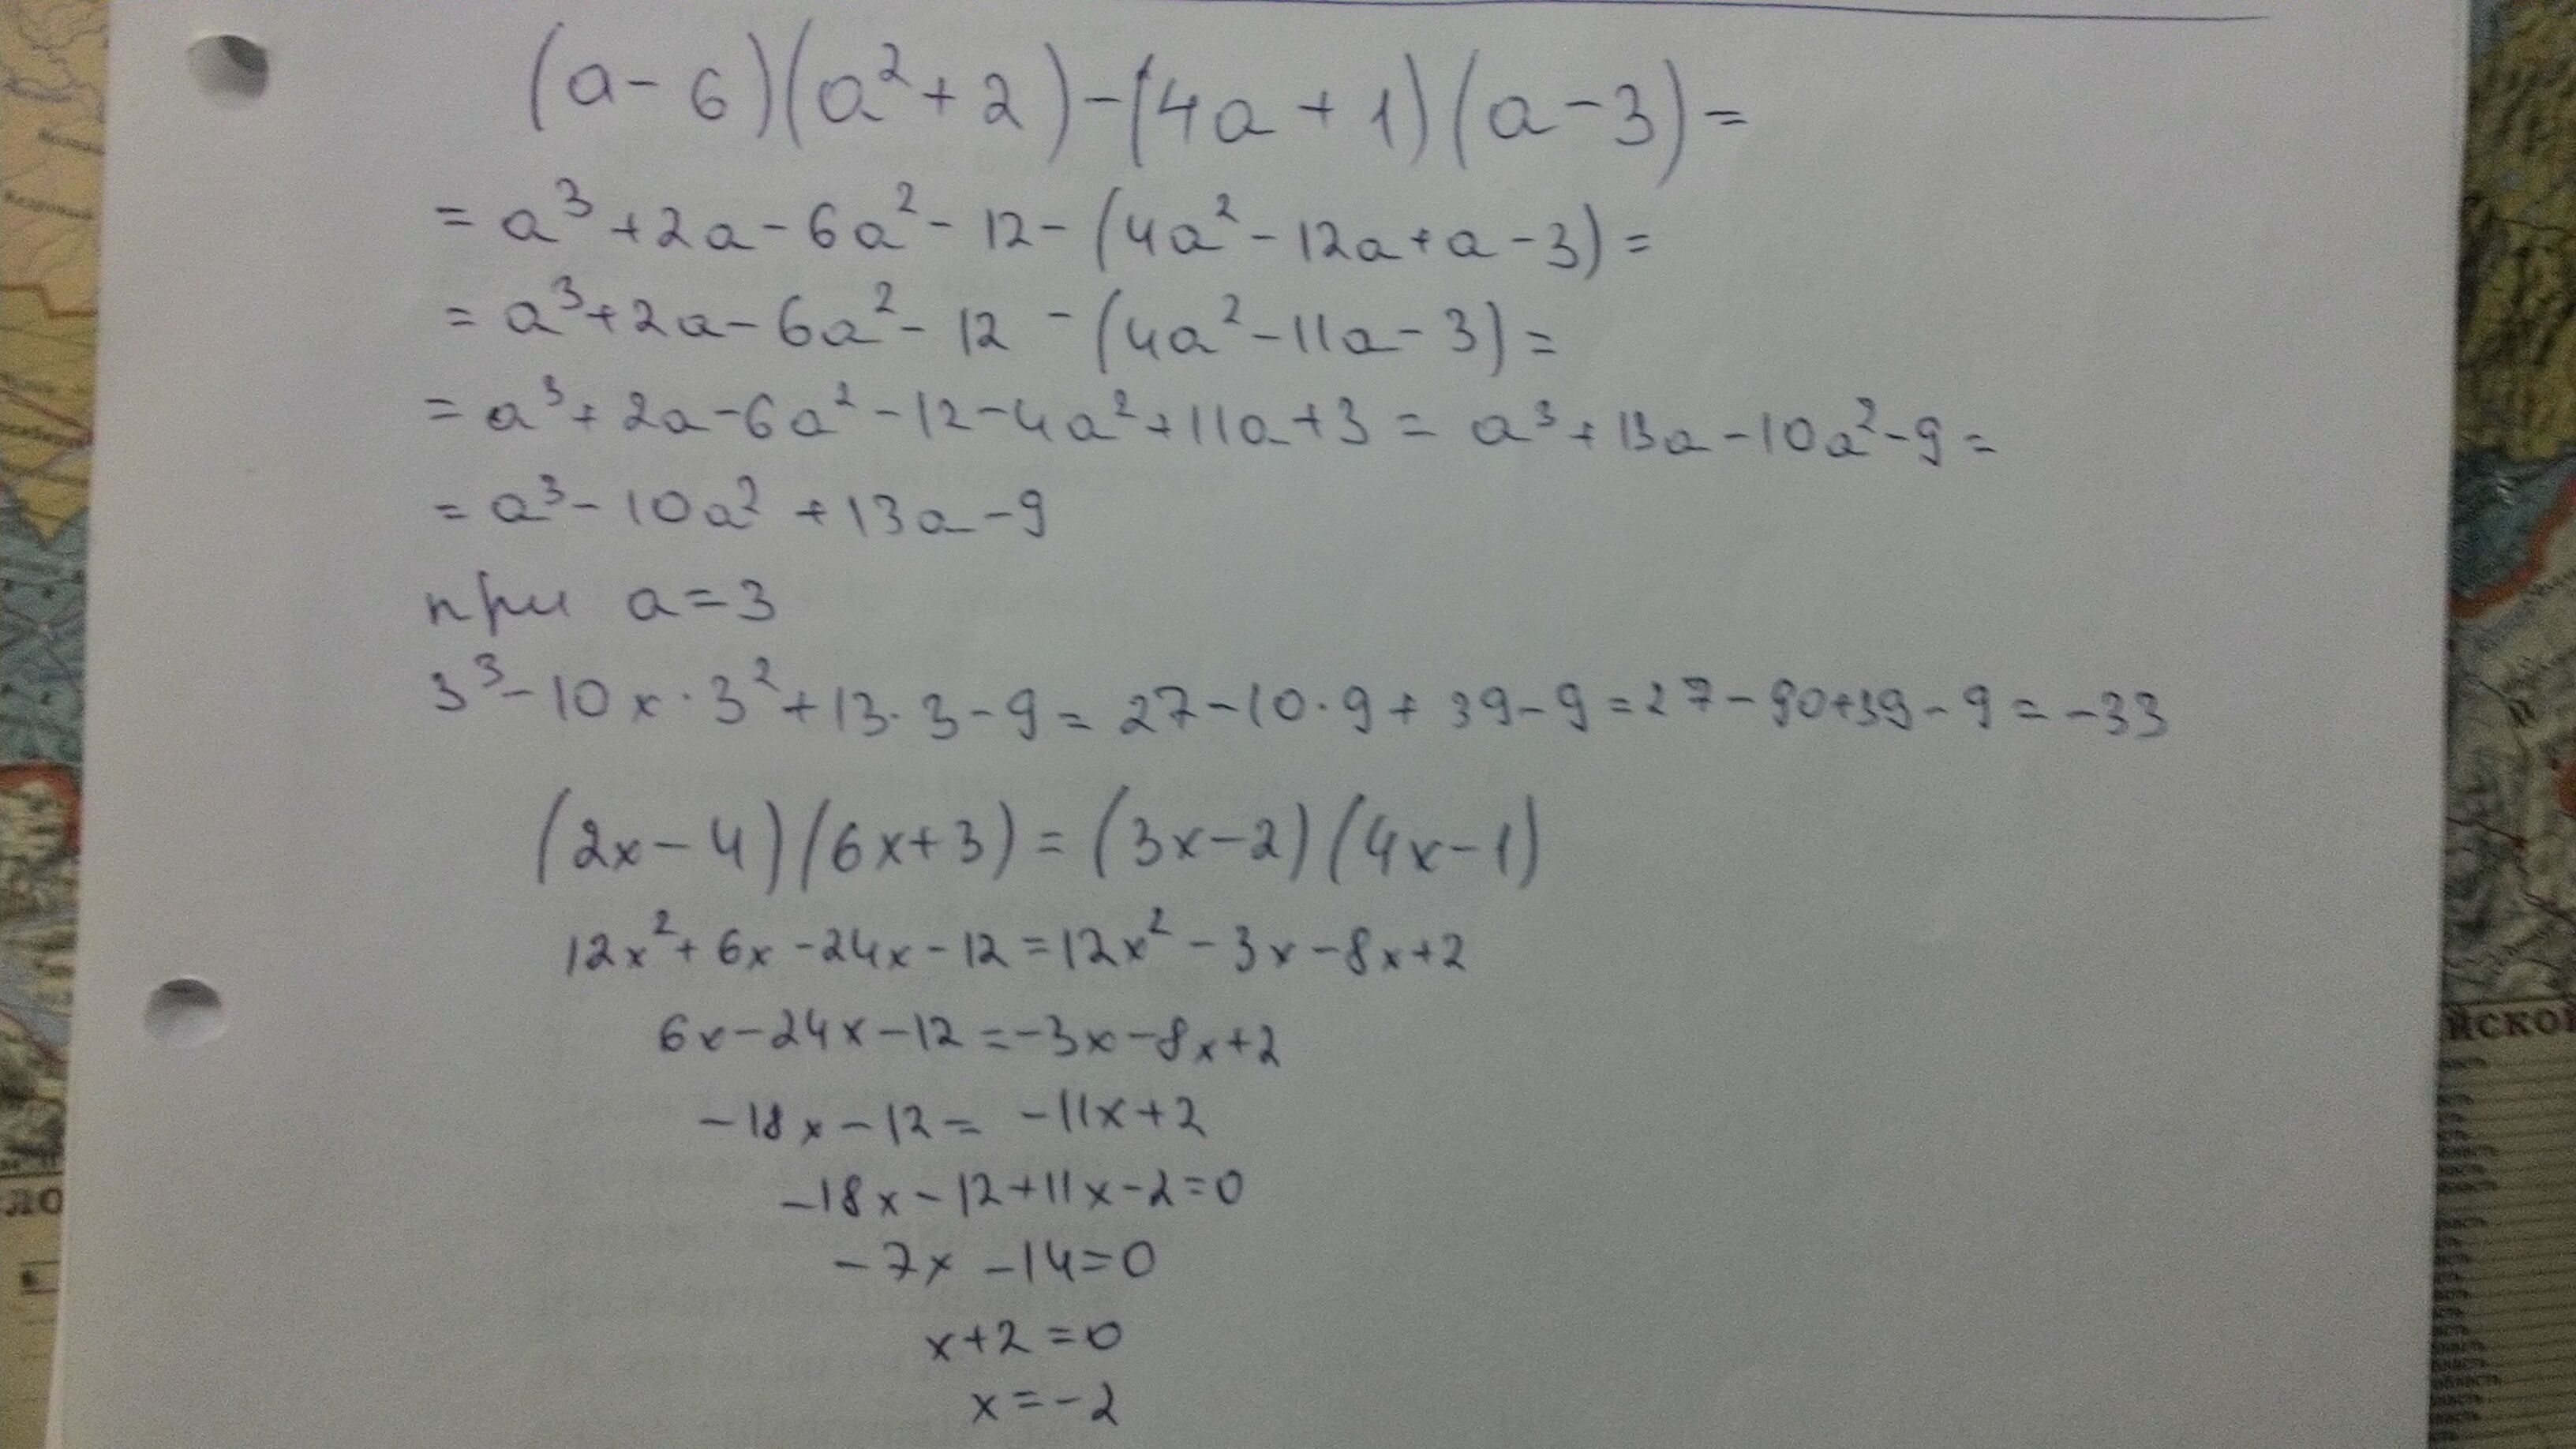 (a-6)(a²+2)-(4a+1)(a-3)=
=a³+2a-6a²-12-(4a²-12a+a-3)=
=a³+2a-6a²-12-(4a²-11a-3)=
=a³+2a-6a²-12-4a²+11a+3=a³+13a-10a²-9=
=a³-10a²+13a-9
при a=3
3³-10x·3²+13·3-9=27-10·9+39-9=27-90+39-9=-33
(2x-4)(6x+3)=(3x-2)(4x-1)
12x²+6x-24x-12=12x²-3x-8x+2
6x-24x-12=-3x-8x+2
-18x-12=-11x+2
-18x-12+11x-2=0
-7x-14=0
x+2=0
x=-2
йской
ло